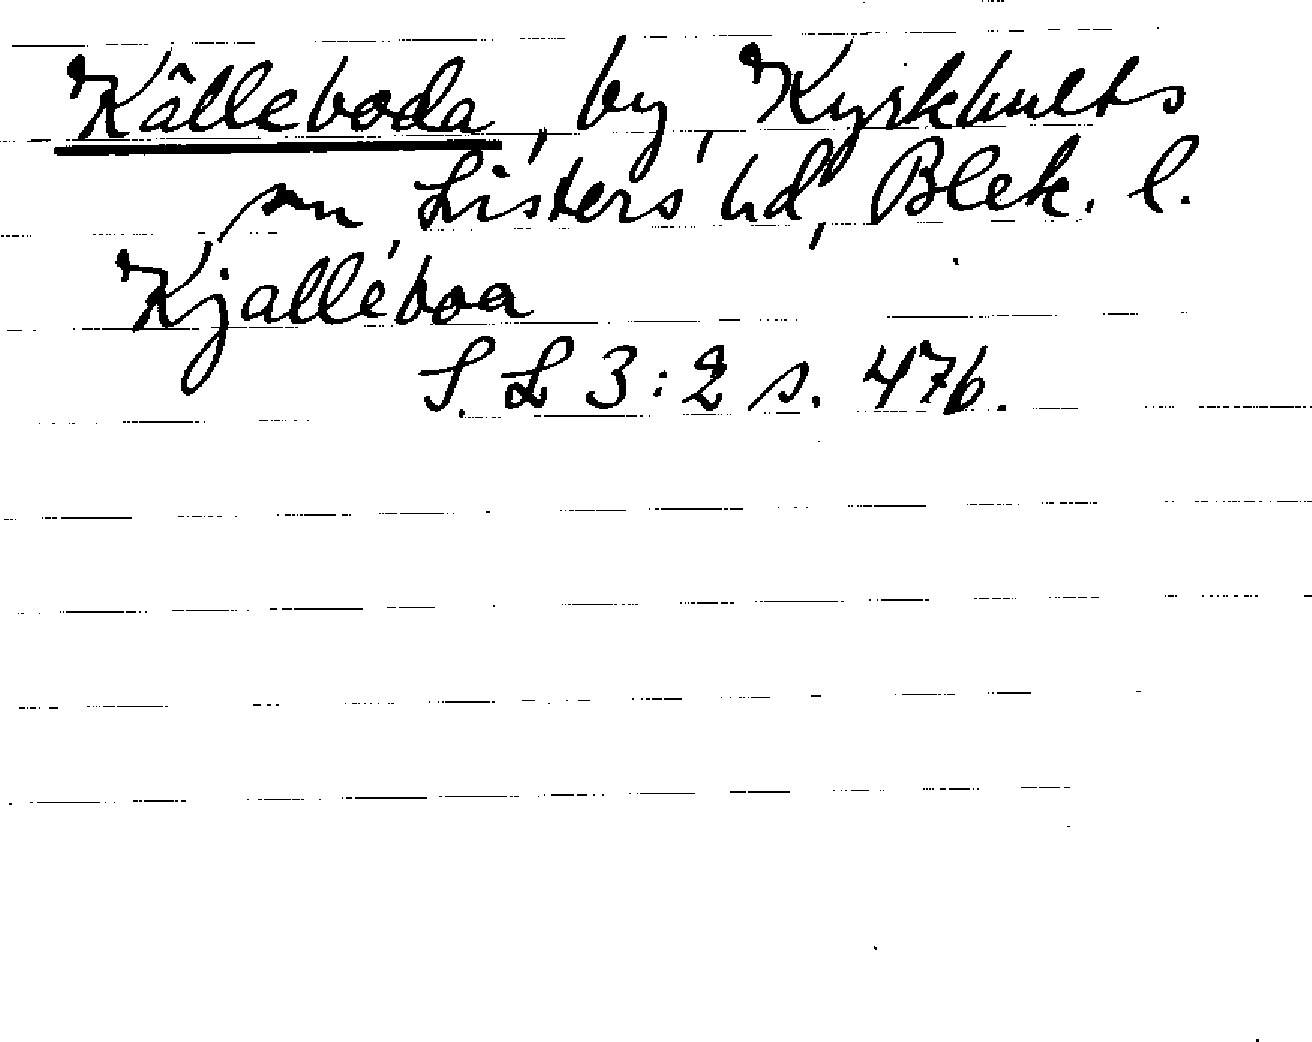 Källeboda, by, Kyrkhults
sn, Listers hd, Blek. l.
Kjalléboa
S. L 3:2 s. 476.